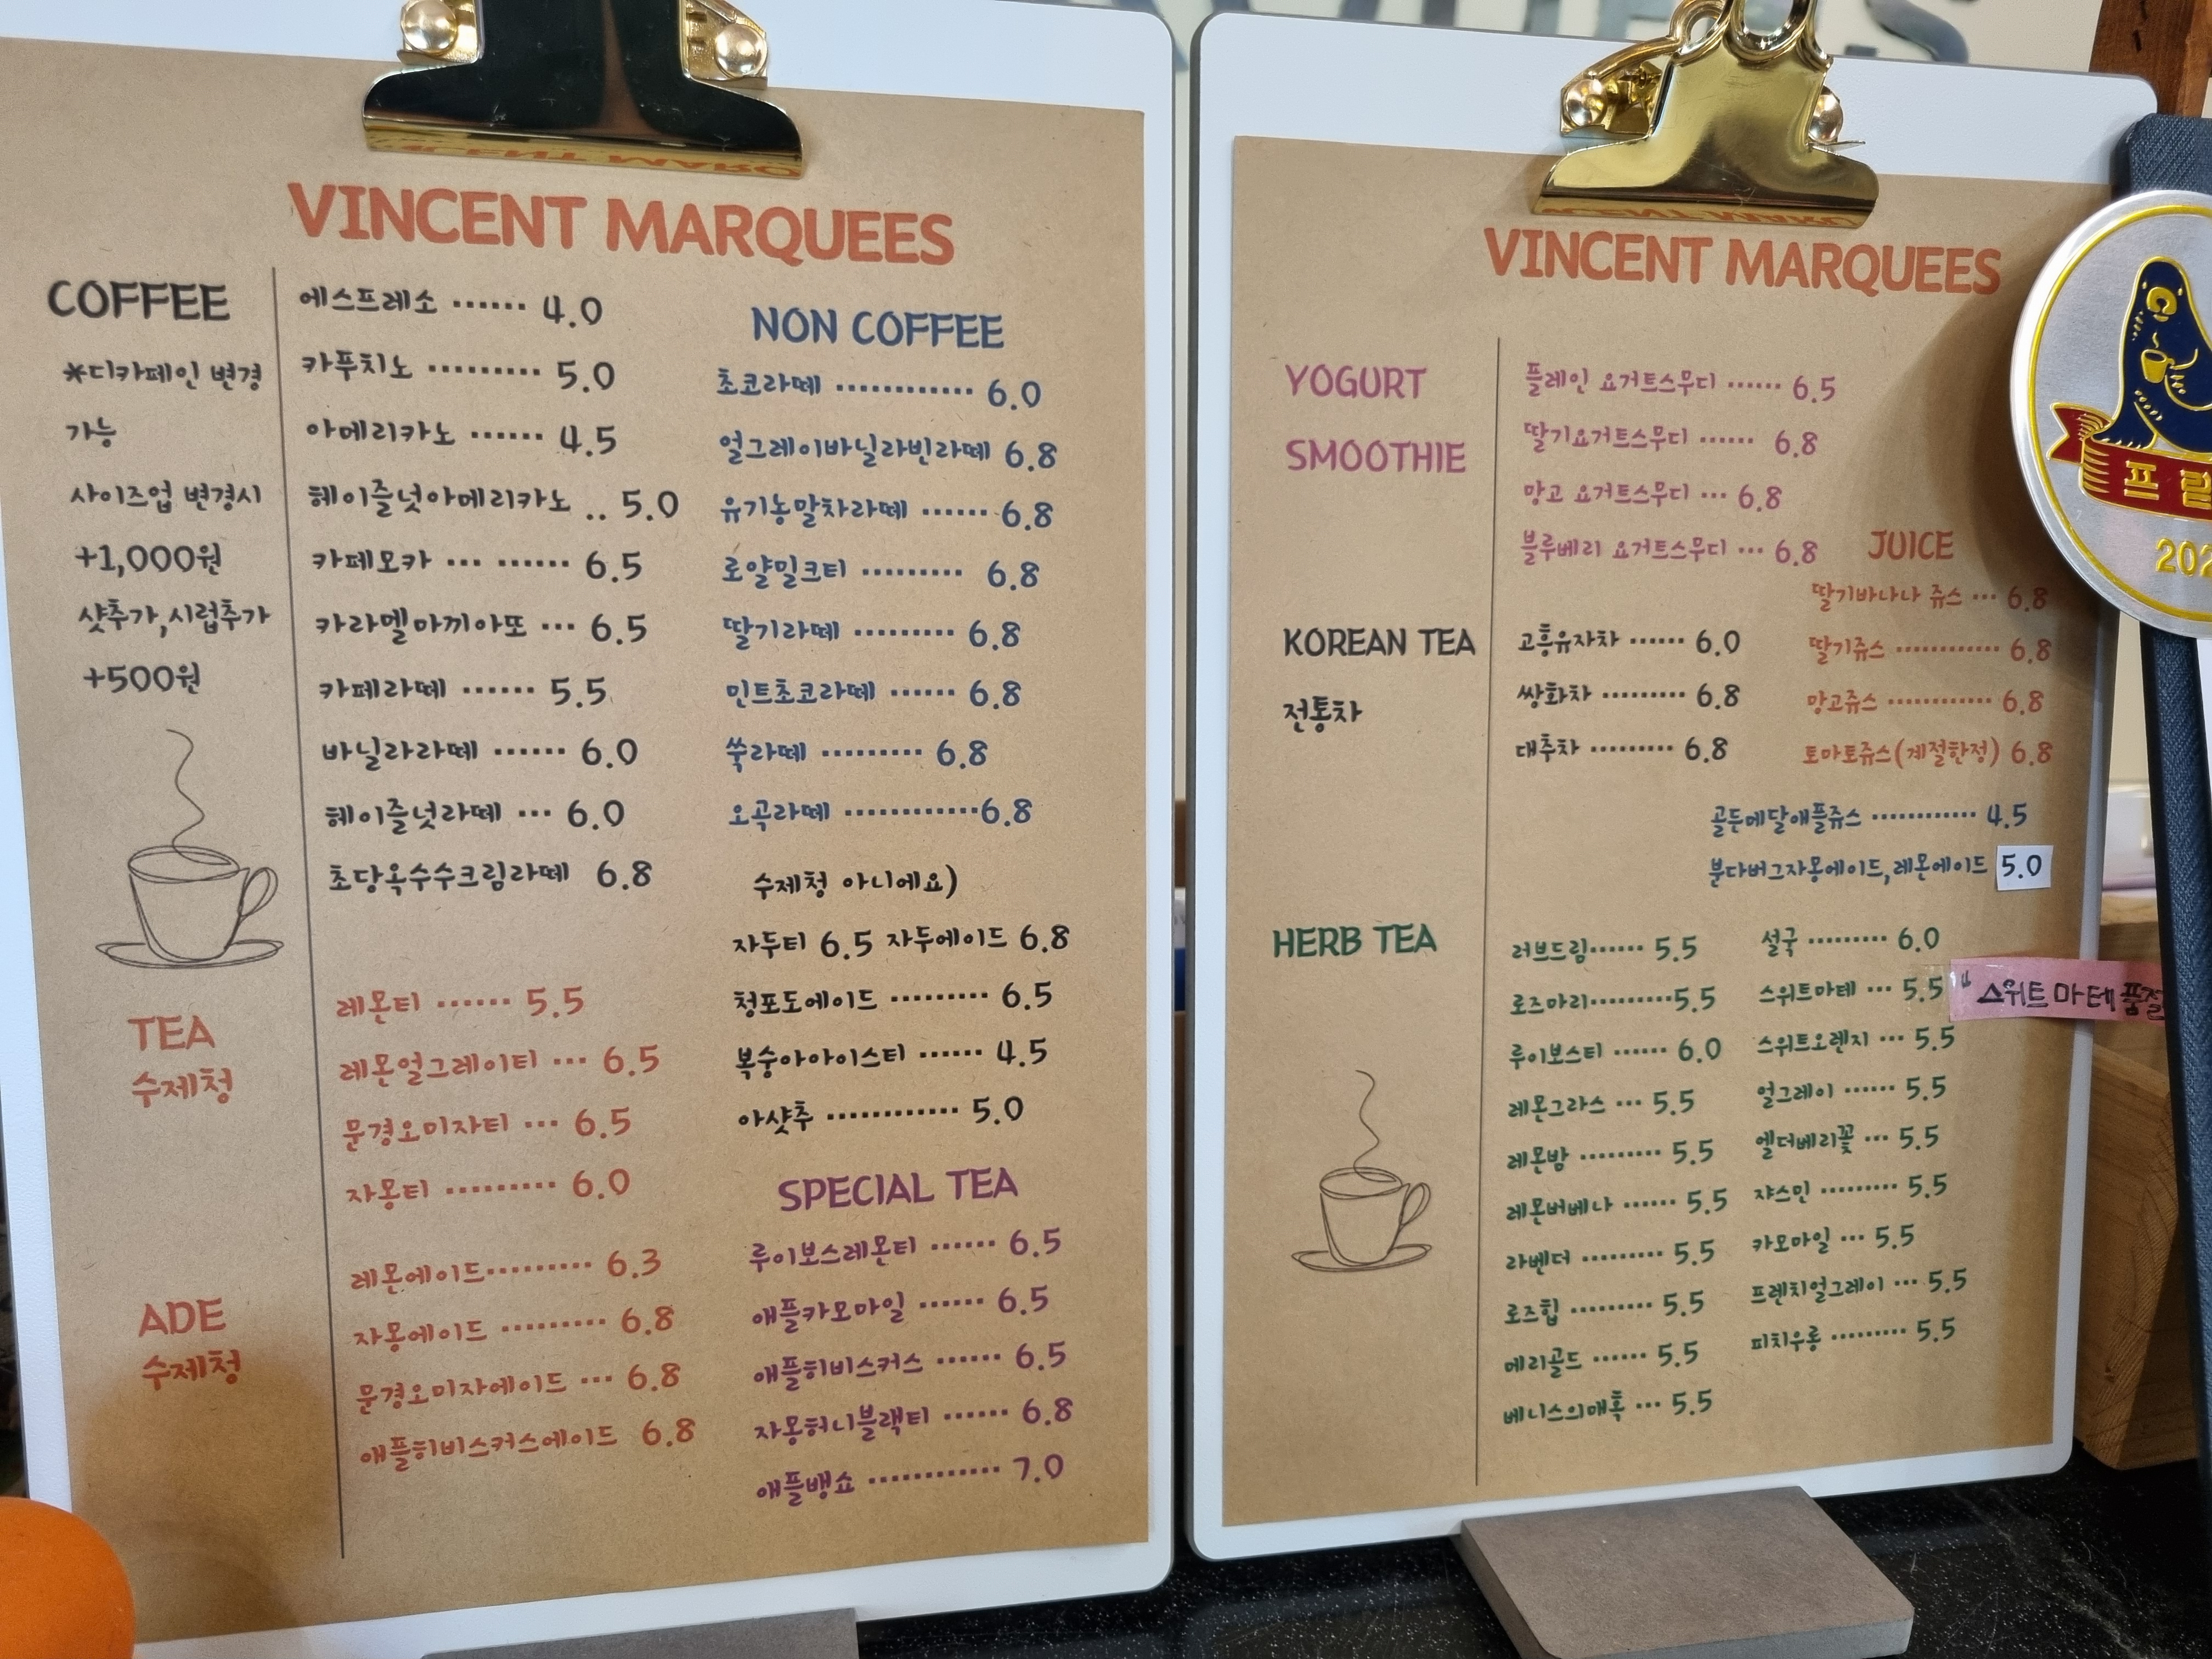 VINCENT MARQUEES
COFFEE
*디카페인 변경
가능
사이즈업 변경시
+1,000원
샷추가,시럽추가
+500원
에스프레소 ...... 4.0
카푸치노 ......... 5.0
아메리카노 ...... 4.5
헤이즐넛아메리카노 .. 5.0
카페모카 ... ...... 6.5
카라멜마끼아또 ... 6.5
카페라떼 ...... 5.5
바닐라라떼 ...... 6.0
헤이즐넛라떼 ... 6.0
초당옥수수크림라떼 6.8
TEA
수제청
레몬티 ...... 5.5
레몬얼그레이티 ... 6.5
문경오미자티 ... 6.5
자몽티 ......... 6.0
ADE
수제청
레몬에이드......... 6.3
자몽에이드 ......... 6.8
문경오미자에이드 ... 6.8
애플히비스커스에이드 6.8
NON COFFEE
초코라떼 ............ 6.0
얼그레이바닐라빈라떼 6.8
유기농말차라떼 ...... 6.8
로얄밀크티 ......... 6.8
딸기라떼 ......... 6.8
민트초코라떼 ...... 6.8
쑥라떼 ......... 6.8
오곡라떼 ............6.8
수제청 아니에요)
자두티 6.5 자두에이드 6.8
청포도에이드 ......... 6.5
복숭아아이스티 ...... 4.5
아샷추 ............ 5.0
SPECIAL TEA
루이보스레몬티 ...... 6.5
애플카모마일 ...... 6.5
애플히비스커스 ...... 6.5
자몽허니블랙티 ...... 6.8
애플뱅쇼 ............ 7.0
VINCENT MARQUEES
YOGURT
SMOOTHIE
플레인 요거트스무디 ...... 6.5
딸기요거트스무디 ...... 6.8
망고 요거트스무디 ... 6.8
블루베리 요거트스무디 ... 6.8
JUICE
딸기바나나 쥬스 ... 6.8
딸기쥬스 ............ 6.8
망고쥬스 ............ 6.8
토마토쥬스(계절한정) 6.8
KOREAN TEA
전통차
고흥유자차 ...... 6.0
쌍화차 ......... 6.8
대추차 ......... 6.8
골든메달애플쥬스 ............ 4.5
분다버그자몽에이드,레몬에이드 5.0
HERB TEA
러브드림...... 5.5
로즈마리.........5.5
루이보스티 ...... 6.0
레몬그라스 ... 5.5
레몬밤 ......... 5.5
레몬버베나 ...... 5.5
라벤더 ......... 5.5
로즈힙 ......... 5.5
메리골드 ...... 5.5
베니스의매혹 ... 5.5
설국 ......... 6.0
스위트마테 ... 5.5
스위트오렌지 ... 5.5
얼그레이 ...... 5.5
엘더베리꽃 ... 5.5
쟈스민 ......... 5.5
카모마일 ... 5.5
프렌치얼그레이 ... 5.5
피치우롱 ......... 5.5
"스위트 마테 품절